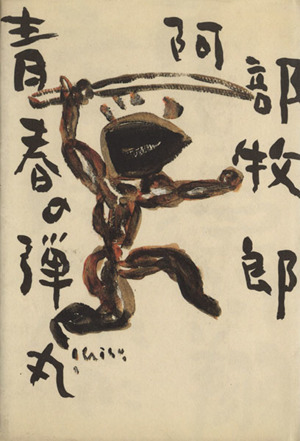 阿部牧郎
青春の弾丸